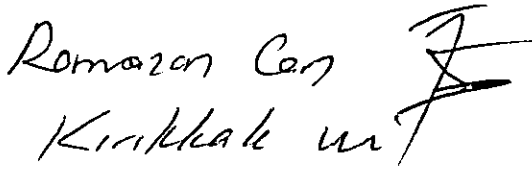 Ramazan Can
Kırıkkale